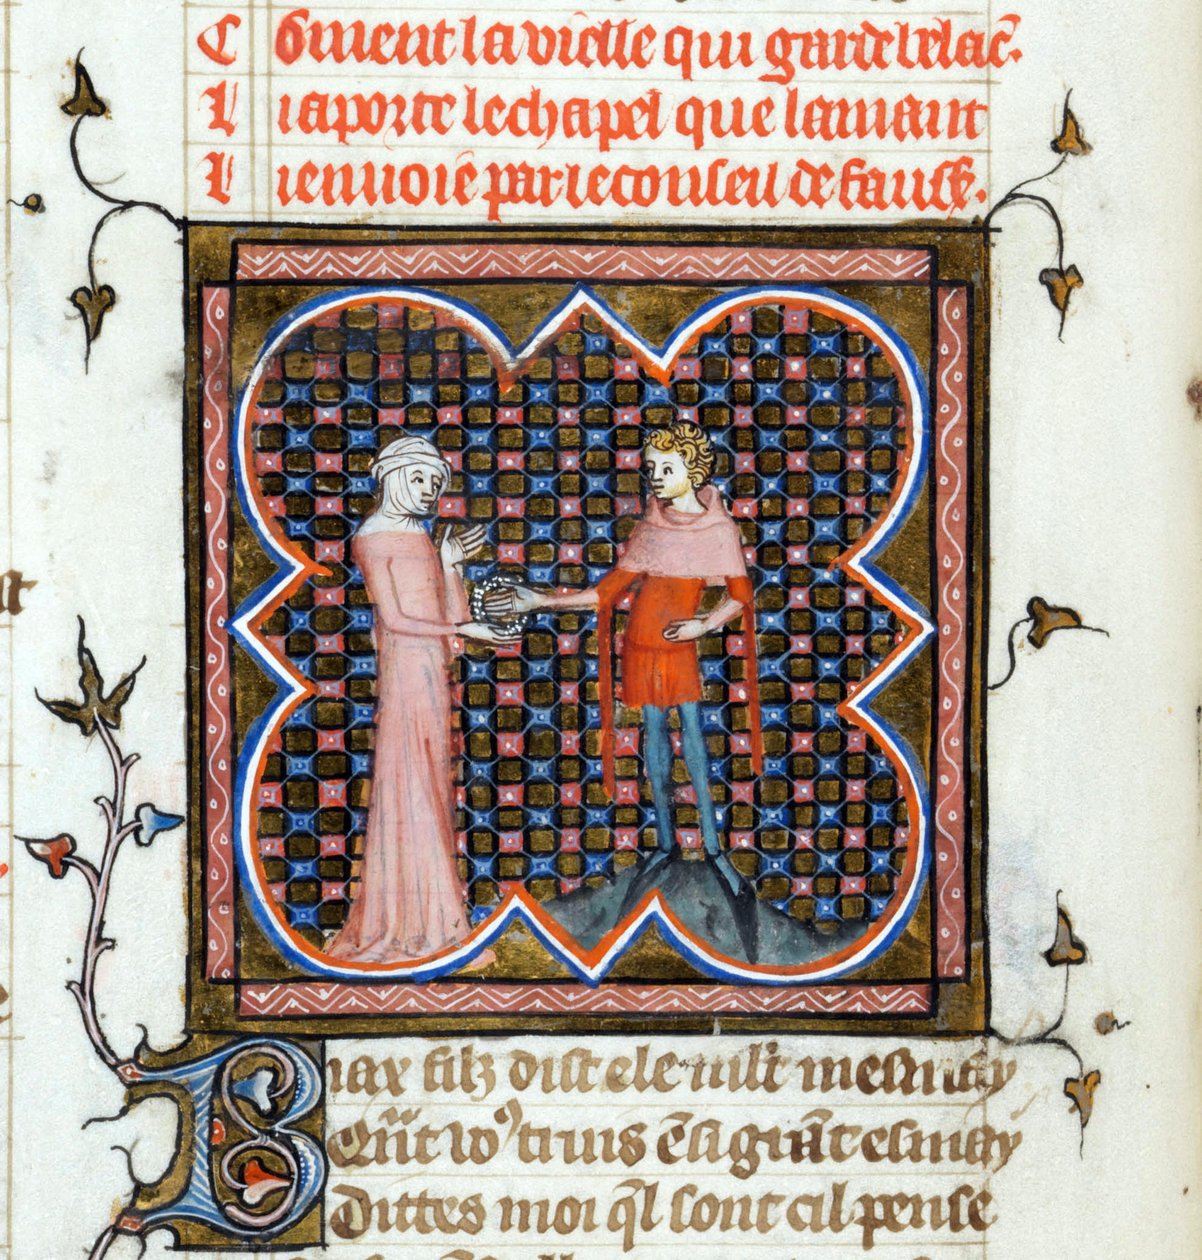 Coment la vielle qui garde bel ac̄.
Li aporte le chapel que lamant
Li envoie par le conseil de faus
Biax filz dist ele mlt mesmay
Q̃nt voꝰ truis ē si grāt esmay
Dittes moi q̄l sont cil pense